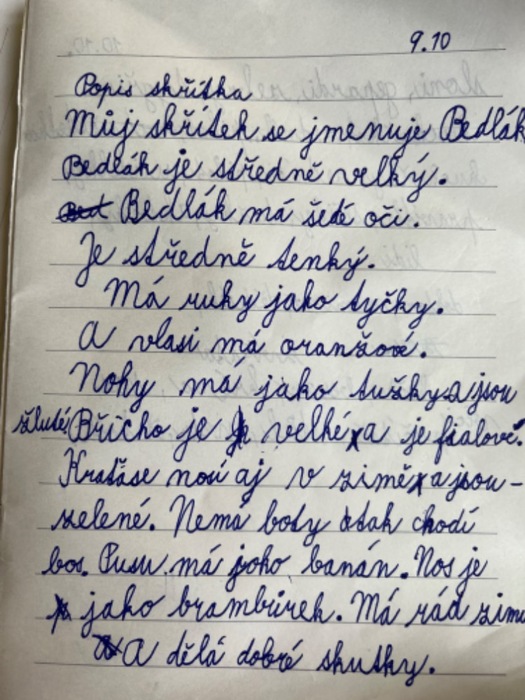 9.10
Popis skřítka
Můj skřítek se jmenuje Bedlák
Bedlák je středně velký.
Bedlák má šedé oči.
Je středně tenký.
Má ruky jako tyčky.
A vlasi má oranžové.
Nohy má jako tužky a jsou
žluté. Břicho je velhé a je fialové.
Kraťase nosí aj v zimě a jsou-
zelené. Nemá boty atak chodí
bos. Pusu má joho banán. Nos je
jako brambůrek. Má rád zimu
A dělá dobré skutky.